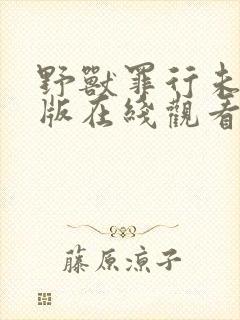 野獸罪行未
版在綫觀看
藤原凉子